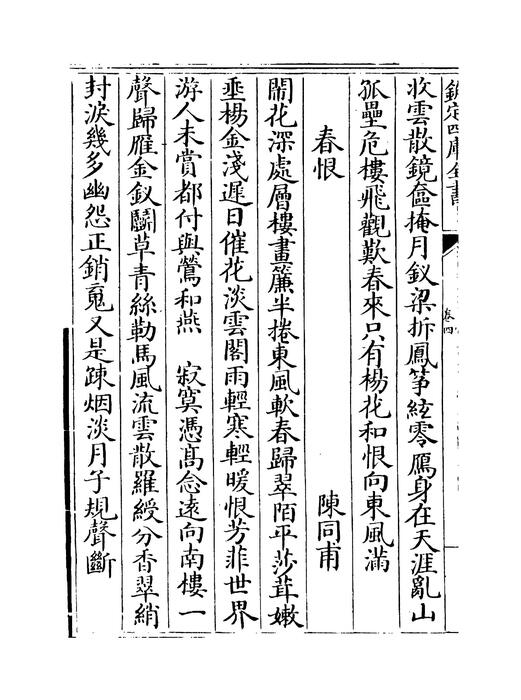 欽定四庫全書
卷四
收雲散鏡奩掩月釵梁拆鳳筝絃零鴈身在天涯亂山
孤壘危樓飛觀歎春來只有楊花和恨向東風滿
春恨 陳同甫
閙花深處層樓畫簾半捲東風軟春歸翠陌平莎茸嫩
垂楊金淺遲日催花淡雲閣雨輕寒輕暖恨芳菲世界
游人未賞都付與鶯和燕 寂寞憑髙念逺向南樓一
聲歸雁金釵鬭草青絲勒馬風流雲散羅綬分香翠綃
封淚幾多幽怨正銷䰟又是疎烟淡月子規聲斷